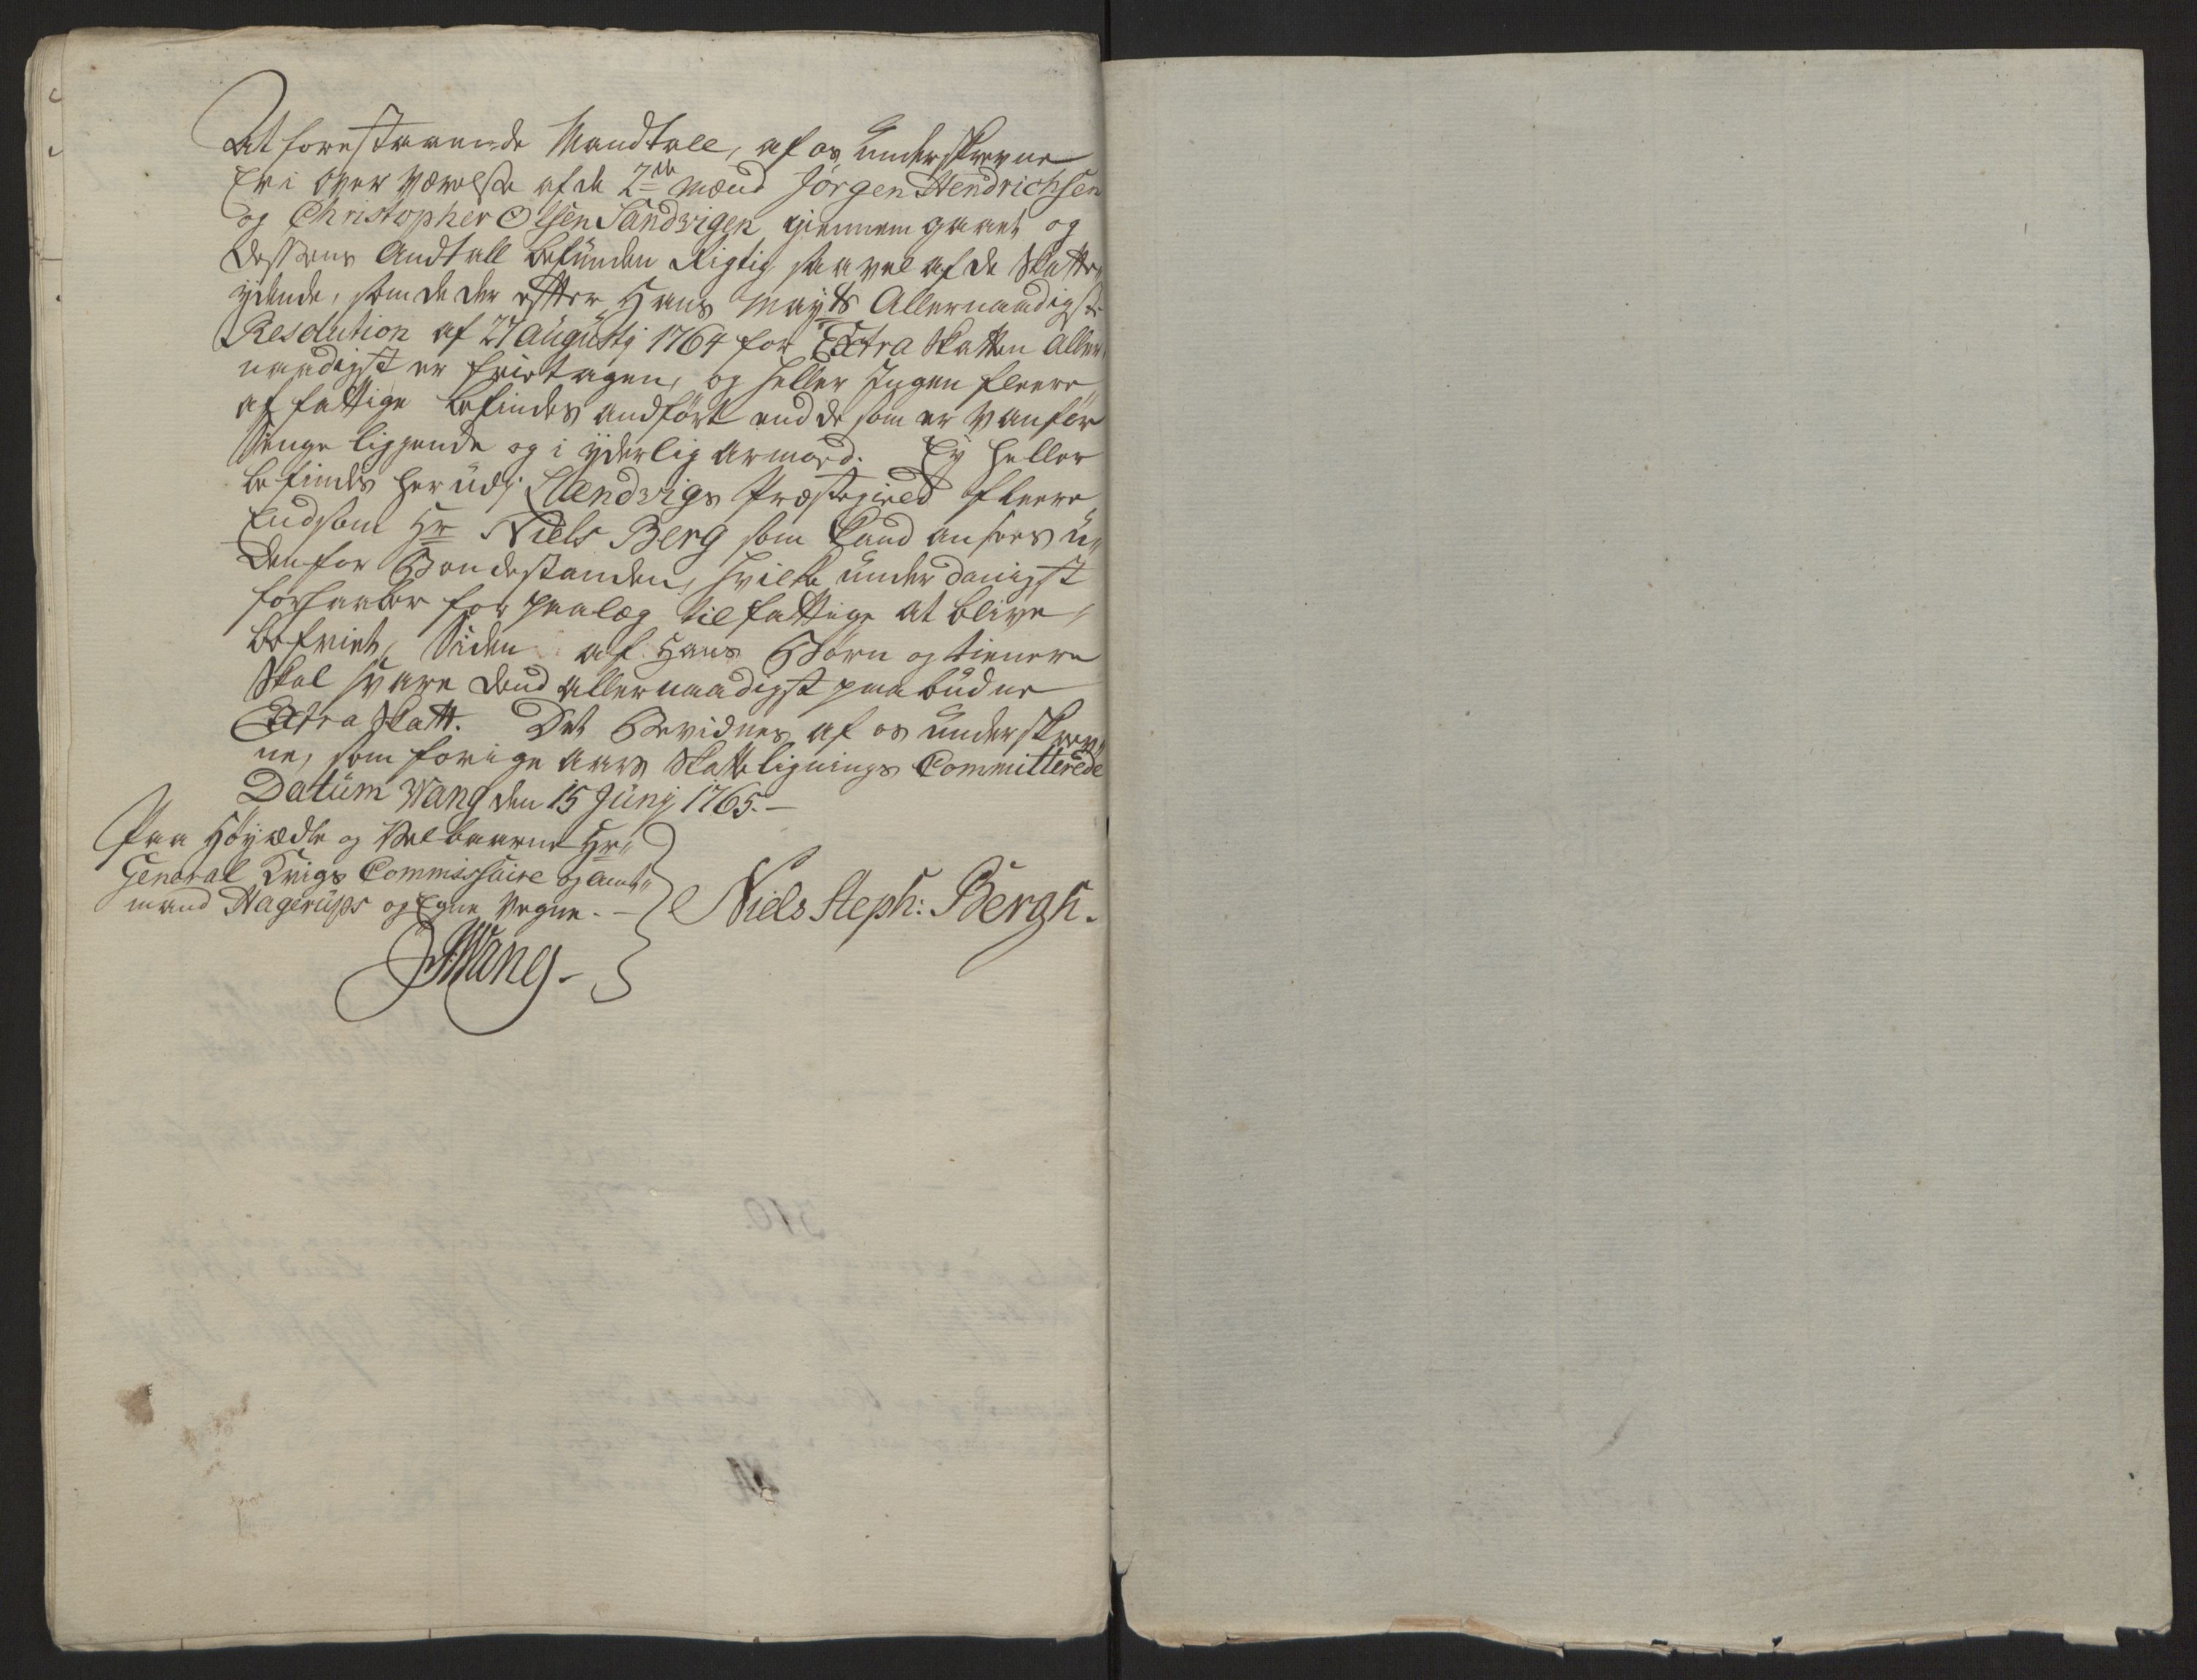 At forestaaende Mandtall, af os underskrevne
Er i Over Værelse af de 2de Mænd Jørgen Hendrichsen
og Christopher Olsen Sandvigen giennem gaaet og
dessens Andtall befunden Rigtig saavel af de Skatte
ydende, som de der efter Hans Mayts Allernaadigste
Resolution af 27 Augustj 1764 for Extra Skatten Aller
naadigst er frie tagen, og heller Ingen fleere
af fattige befindes andført end de som er Vanfør
Senge liggende og i yderlig armoed. Ey heller
befindes her udj Hendvigs Præstegield fleere
End som Hr Niels Berg som kand ansees u„
den for Bondestanden, hvilke underdanigst
forhaaber for paalæg til fattige at blive
befriet, Siden af Hans Børn og tienere
Skal svare dend allernaadigst paabudne
Extra Skatt. Det Bevidnes af os underskrev„
ne, som forige aars Skatte lignings Committerede
Datum Wang den 15 Junj 1765.—
Paa Høyædle og Velbaarne Hr„
General Krigs Commissaire og Amt„
mand Hagerups og Egne Vegne.—
Niels Steph: Bergh.
Wang.